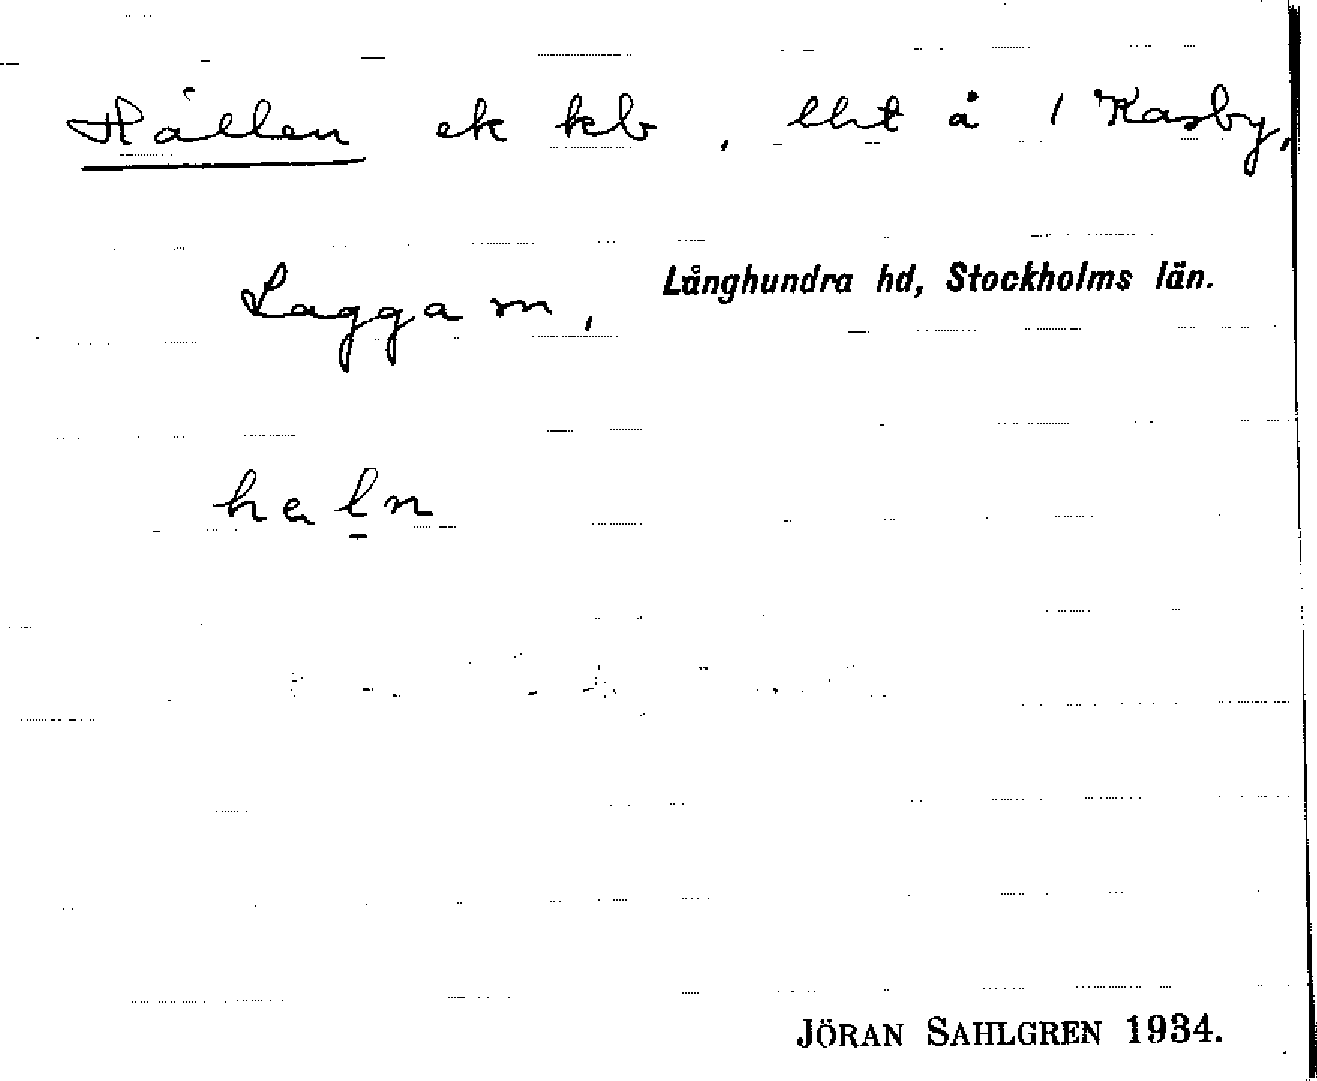 Hållen ek kb, lht å 1 Kasby,
Lagga sn, Långhundra hd, Stockholms län.
JÖRAN SAHLGREN 1934.